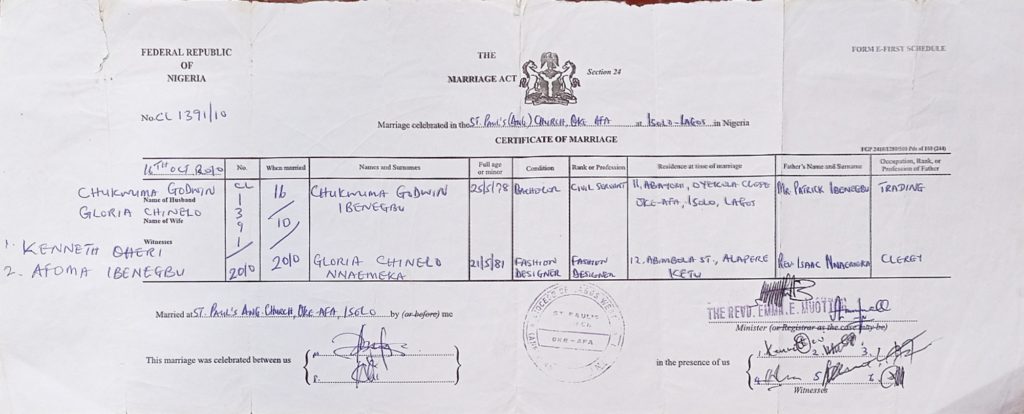 FEDERAL REPUBLIC
OF
NIGERIA
THE
MARRIAGE ACT
Section 24
FORM E-FIRST SCHEDULE
No. CL 1391/10
Marriage celebrated in the ST. PAUL'S (ANG) CHURCH, OKE AFA at ISOLO-LAGOS in Nigeria
CERTIFICATE OF MARRIAGE
16TH OCT 2010
No.
When married
Names and Surnames
Full age or minor
Condition
Rank or Profession
Residence at time of marriage
Father's Name and Surname
Occupation, Rank, or Profession of Father
CHUKWUMA GODWIN
Name of Husband
GLORIA CHINELO
Name of Wife
Witnesses
1. KENNETH OHERI
2. AFOMA IBENEGBU
CL
1
3
9
1
/
2010
16
/
10
/
2010
CHUKWUMA GODWIN
IBENEGBU
25/5/78
BACHELOR
CIVIL SERVANT
11, ABAYOMI, OYEKOLA CLOSE
OKE-AFA, ISOLO, LAGOS
MR. PATRICK IBENEGBU
TRADING
GLORIA CHINELO
NNAEMEKA
21/5/81
FASHION
DESIGNER
FASHION
DESIGNER
12, ABIMBOLA ST., ALAPERE
KETU
REV. ISAAC NNAEMEKA
CLERGY
Married at ST. PAUL'S ANG. CHURCH, OKE-AFA, ISOLO by (or before) me
THE REVD. EMMA. E. MUOTT
Minister (or Registrar as the case may be)
ST PAUL'S
OKE-AFA
This marriage was celebrated between us
in the presence of us
1.
2.
3.
4.
5.
6.
Witnesses